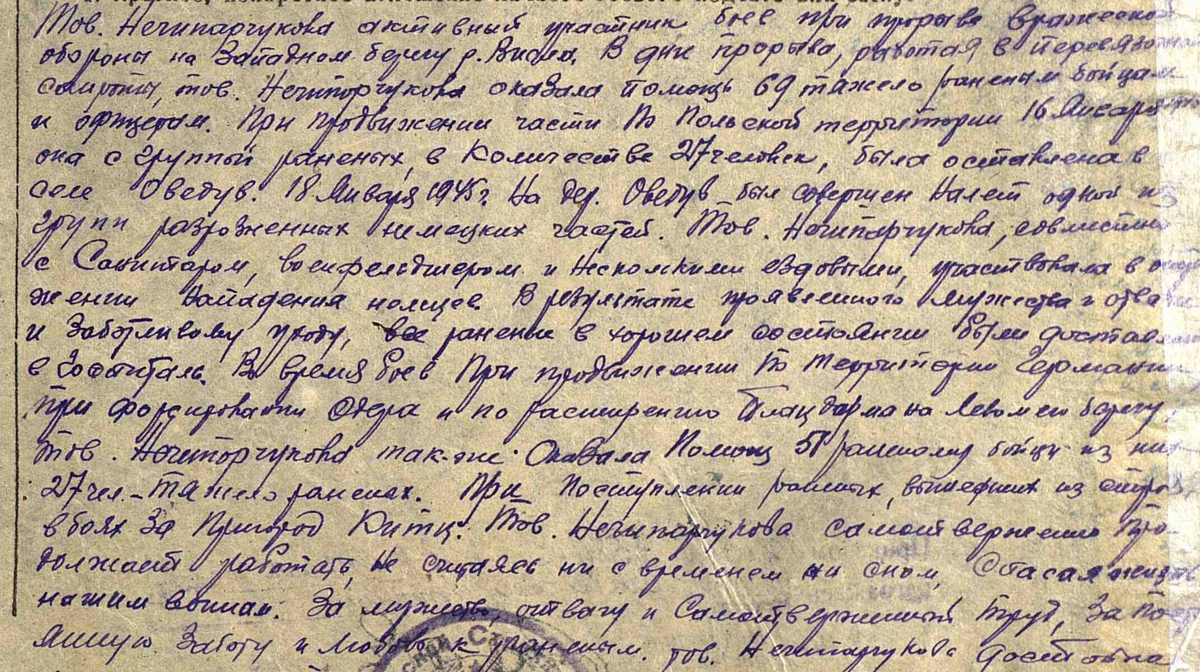 Тов. Нечипарчукова активный участник боев при прорыве вражеской
обороны на Западном берегу р. Висла. В дни прорыва, работая в перевязочной
тов. Нечипорчукова оказала помощь 69 тяжело раненым бойцам
и офицерам. При продвижении части по Польской территории 16 Января
она с группой раненых, в количестве 27 человек, была оставлена в
селе Оведув. 18 Января 1945 г. на дер. Оведув был совершен налет одной из
групп разрозненных немецких частей. Тов. Нечипарчукова, совместно
с Санитаром, военфельдшером и несколькими ездовыми, участвовала в
жении нападения немцев. В результате проявленного мужества
и Заботливому уходу, все раненые в хорошем состоянии были
в Госпиталь. Во время боев при продвижении по территории Германии
при форсировании Одера и по расширению Плацдарма на левом берегу,
тов. Нечипорчукова так-же оказала помощь 51 раненому бойцу из них
27 чел. - тяжело раненых. При поступлении раненых, вышедших из строя
в боях за Пригород Китц. Тов. Нечипарчукова самоотверженно про
должает работать, не считаясь ни с временем ни сном, Спасая жизнь
нашим воинам. За мужество, отвагу и Самоотверженный труд, за
Заботу и любовь к раненым. тов. Нечипарчукова достойна